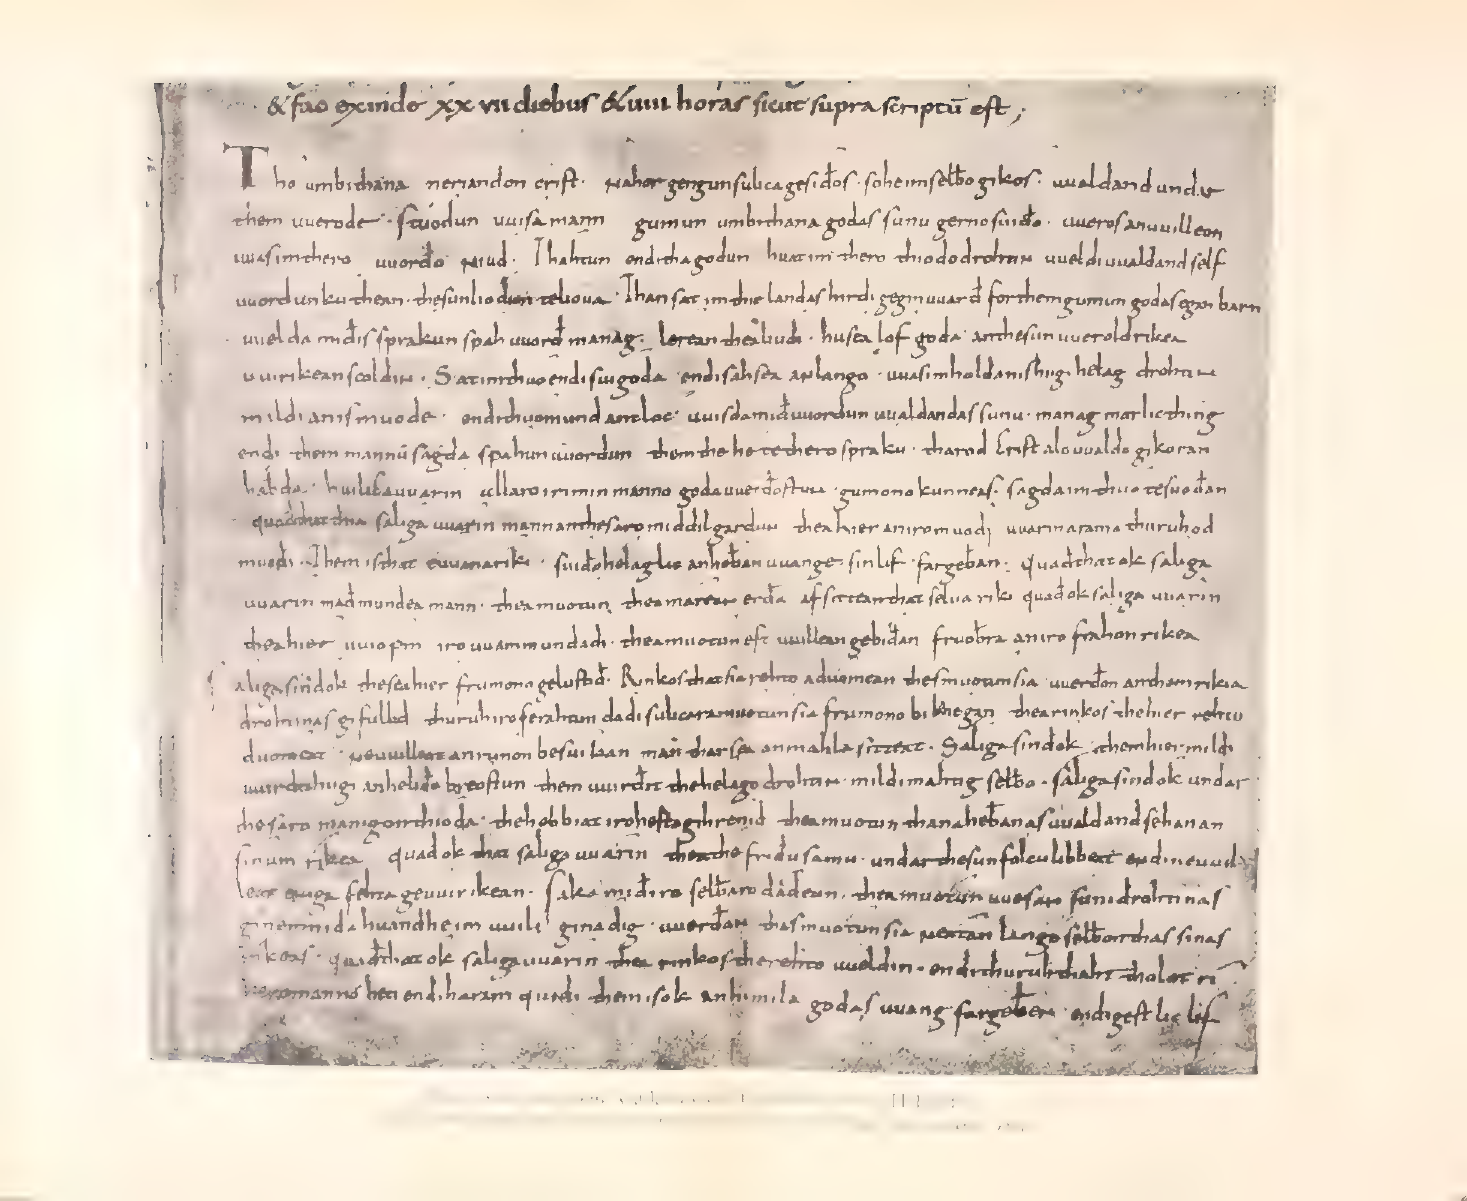 & fac exinde xx vii diebus & uiiii horas sicut supra scriptū est ;
Tho umbithana neriandon crist · nahor gengun sulica gesiđos · so he im selƀo gikos · uualdand undar
them uuerode · stuodun uuisa mann gumun umbithana godas sunu gerno suiđo · uueros an uuilleon
uuas im thero uuordo niud · Thahtun endi thagodun huat im thero thiodo drohtin uueldi uualdand self
uuordun kuthean · thesun liodiun te lioua · Than sat im the landas hirdi geginuuard for them gumun godas egan barn
uuelda mid is sprakun spah uuord manag · lerean thea liudi · huo sea lof goda an thesun uueroldrikea
uuirikean scoldin · Sat im thuo endi suigoda endi sah sea an lango · uuas im hold an is hugi helag drohtin
mildi an is muode · endi thuo mund antloc · uuisda mid uuordun uualdandas sunu · manag marlic thing
endi them mannū sagda spahun uuordun them the he te thero spraku · tharod Crist alouualdo gikoran
haƀda · huilica uuarin allaro irimin manno goda uuerđostun · gumono kunneas · sagda im thuo te suođan
quađ that thia saliga uuarin mann an thesaro middilgardun thea hier an iro muodi uuarin arama thuruh od
muodi · Them is that euuana riki · suiđo helaglic an heƀanuuange sin lif fargeƀan · Quađ that ok saliga
uuarin mađmundea mann · thea muotun thea marean erđa afsittean that selua riki quađ ok saliga uuarin
thea hier uuiopin iro uuammun dadi · thea muotun eft uuillean gebiđan fruoƀra an iro frahon rikea
aliga sindok the sea hier frumono gelustid · Rinkos that sia rehto aduomean thes muotun sia uuerđan an them rikia
drohtinas gifullid thuruh iro ferahtun dadi sulicara muotun sia frumono biknegan thea rinkos the hier rehto
duomeat · ne uuilleat an runon besuikan man thar sea an mahla sitteat · Saliga sindok them hier mildi
uuirdit hugi an helido breostun them uuirđit the helago drohtin mildi mahtig selƀo · saliga sindok undar
thesaro manigon thioda · the hebbiat iro herta gihrenid thea muotun thana heƀanas uualdand sehan an
sinum rikea quađ ok that saliga uuarin thea the friđu samu undar thesun folcu libbeat endi ne uuil
leat eniga fehta geuuirikean · saka mid iro selƀaro dađeun · thea muotun uuesan suni drohtinas
ginemnida huand he im uuili ginadig uuerđan thas muotun sia neatan lango selƀon thas sinas
rikeas · quađ that ok saliga uuarin thea rinkos the rehto uueldin · endi thuruh that tholot ri
keromanno heti endi haram quidi them is ok an himila godas uuang fargeƀen endi gestlic lif